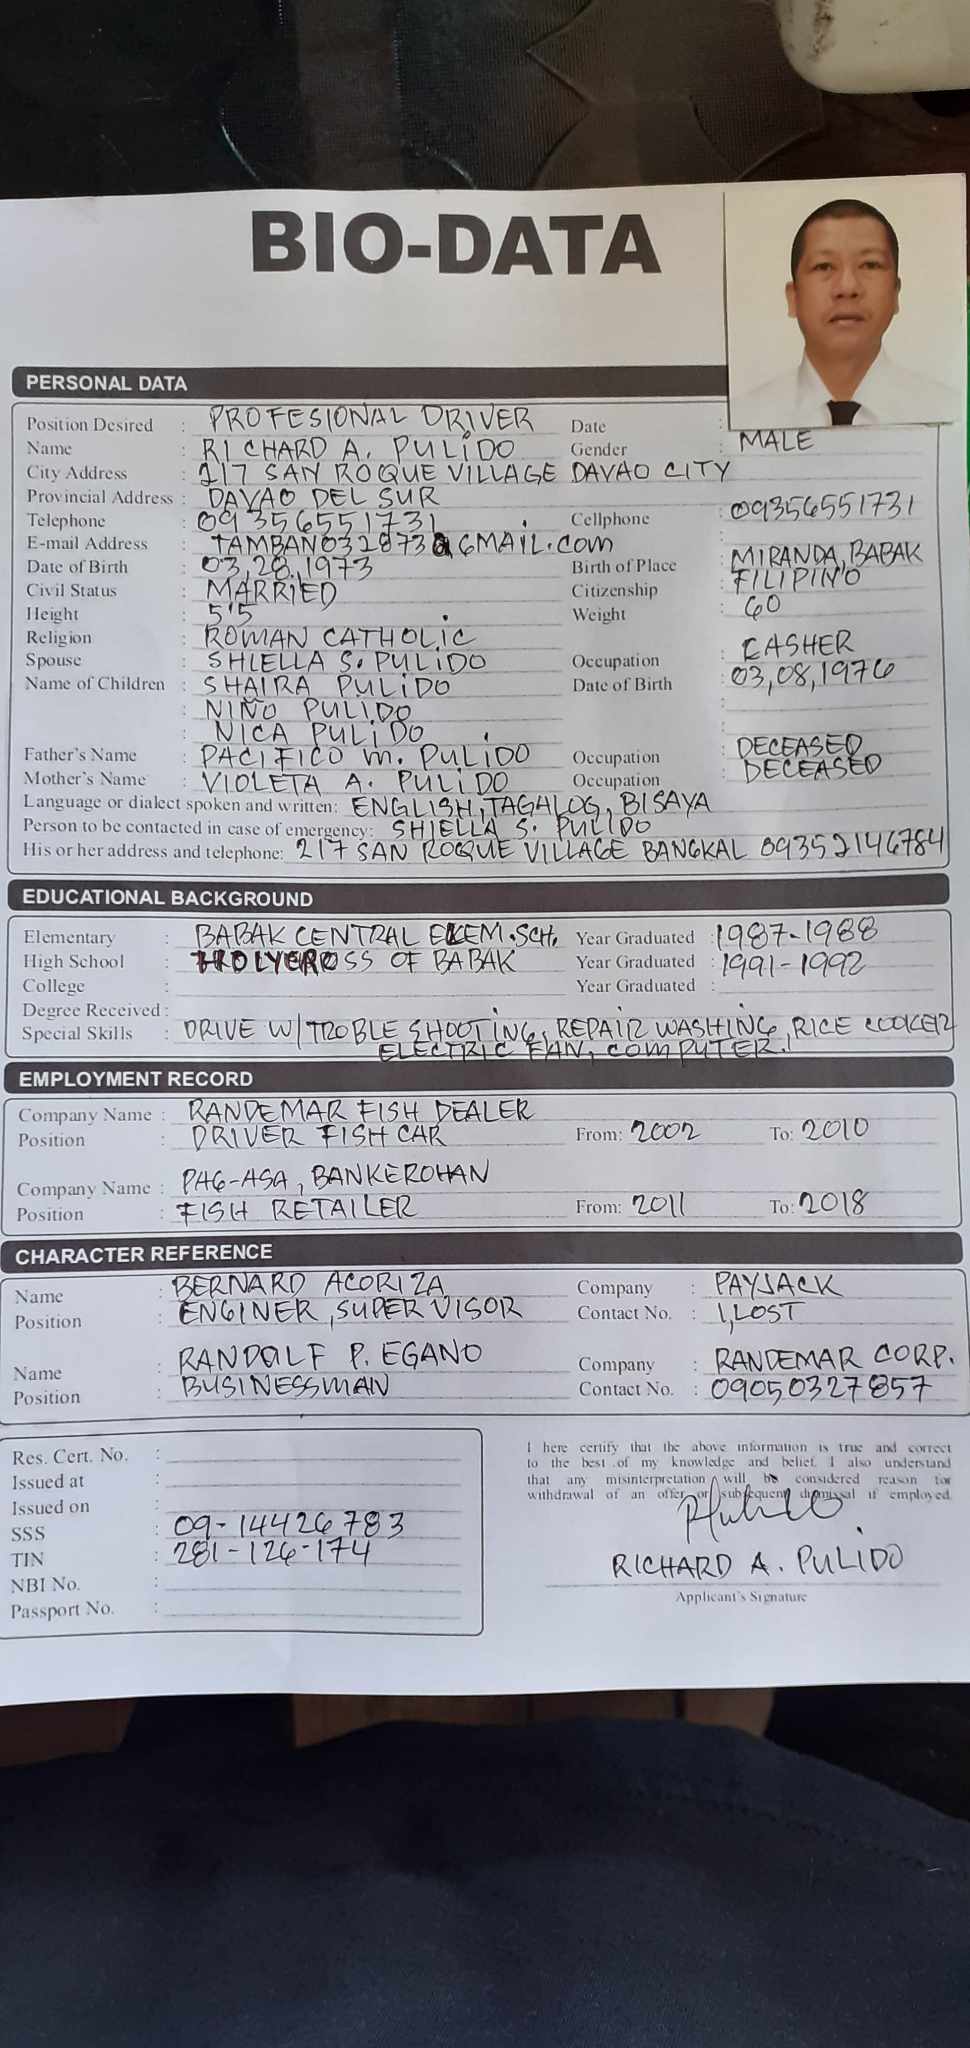 BIO-DATA
PERSONAL DATA
Position Desired : PROFESIONAL DRIVER Date :
Name : RICHARD A. PULIDO Gender : MALE
City Address : 217 SAN ROQUE VILLAGE DAVAO CITY
Provincial Address : DAVAO DEL SUR
Telephone : 09356551731 Cellphone : 09356551731
E-mail Address : TAMBAN032873@GMAIL.com
Date of Birth : 03,28,1973 Birth of Place : MIRANDA, BABAK
Civil Status : MARRIED Citizenship : FILIPINO
Height : 5'5 Weight : 60
Religion : ROMAN CATHOLIC
Spouse : SHIELLA S. PULIDO Occupation : CASHER
Name of Children : SHAIRA PULIDO Date of Birth : 03,08,1976
: NIÑO PULIDO
: NICA PULIDO
Father's Name : PACIFICO M. PULIDO Occupation : DECEASED
Mother's Name : VIOLETA A. PULIDO Occupation : DECEASED
Language or dialect spoken and written: ENGLISH, TAGALOG, BISAYA
Person to be contacted in case of emergency: SHIELLA S. PULIDO
His or her address and telephone: 217 SAN ROQUE VILLAGE BANGKAL 09352146784
EDUCATIONAL BACKGROUND
Elementary : BABAK CENTRAL ELEM. SCH. Year Graduated : 1987-1988
High School : HOLYCROSS OF BABAK Year Graduated : 1991-1992
College : Year Graduated :
Degree Received :
Special Skills : DRIVE W/TROBLE SHOOTING, REPAIR WASHING, RICE COOKER
ELECTRIC FAN, COMPUTER.
EMPLOYMENT RECORD
Company Name : RANDEMAR FISH DEALER
Position : DRIVER FISH CAR From: 2002 To: 2010
Company Name : PAG-ASA, BANKEROHAN
Position : FISH RETAILER From: 2011 To: 2018
CHARACTER REFERENCE
Name : BERNARD ACORIZA Company : PAYJACK
Position : ENGINER, SUPERVISOR Contact No. : 1,LOST
Name : RANDOLF P. EGANO Company : RANDEMAR CORP.
Position : BUSINESSMAN Contact No. : 09050327857
Res. Cert. No. :
Issued at :
Issued on :
SSS : 09-14426783
TIN : 281-126-174
NBI No. :
Passport No. :
I here certify that the above information is true and correct
to the best of my knowledge and belief. I also understand
that any misinterpretation will be considered reason for
withdrawal of an offer or subsequent dismissal if employed.
RICHARD A. PULIDO
Applicant's Signature